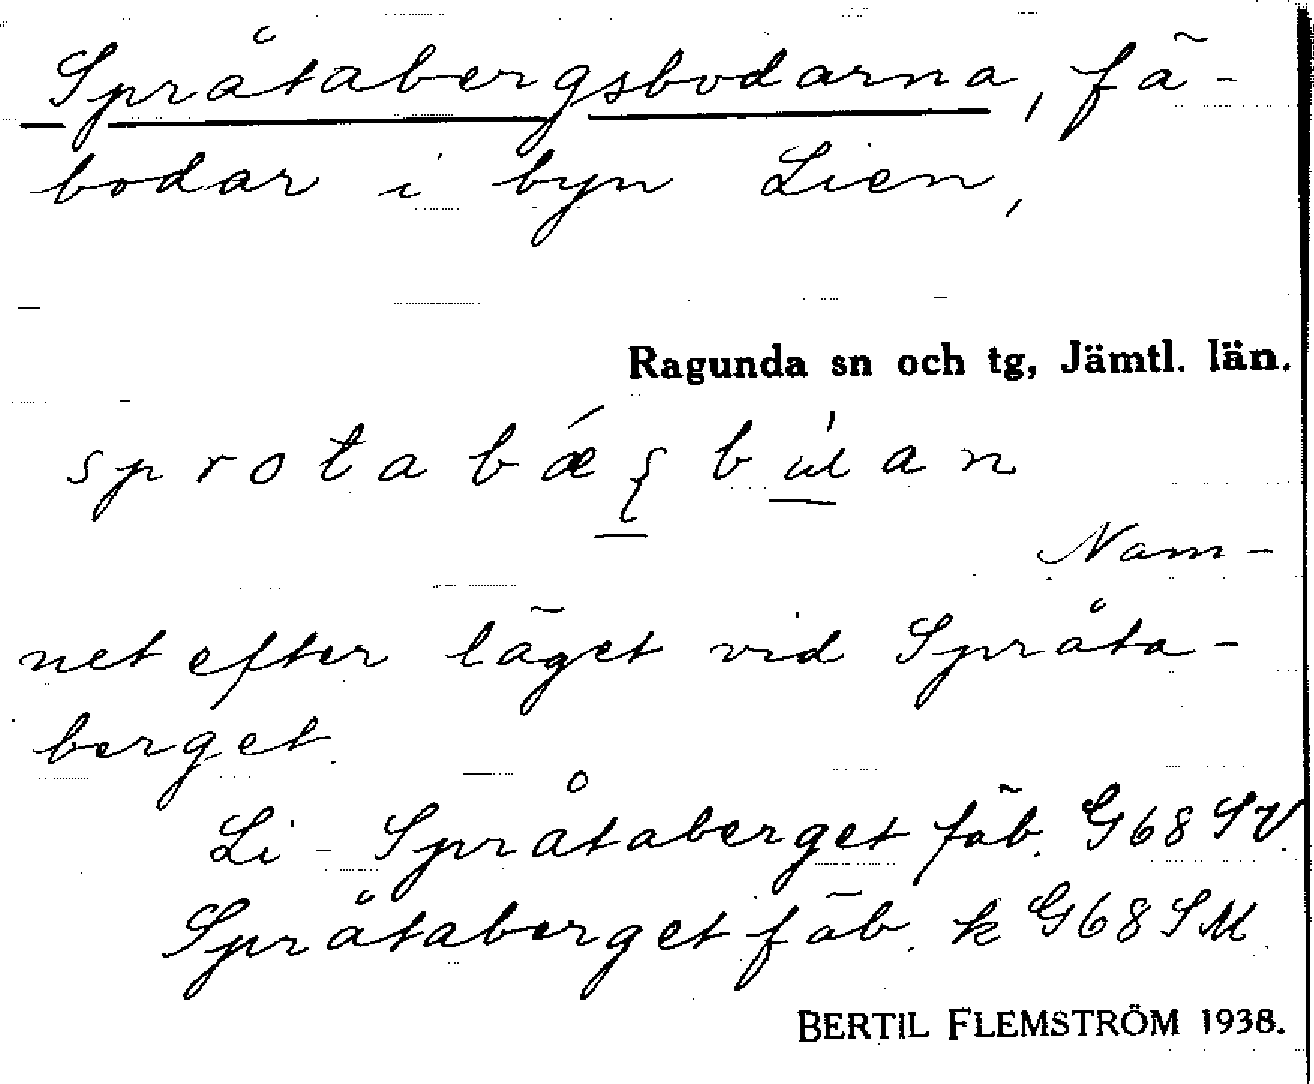 Språtabergsbodarna, fä-
bodar i byn Lien,
Ragunda sn och tg, Jämtl. län.
Nam-
net efter läget vid Språta-
berget.
Li - Språtaberget fäb. G68SV.
Språtaberget fäb. k G68SM.
BERTIL FLEMSTRÖM 1938.